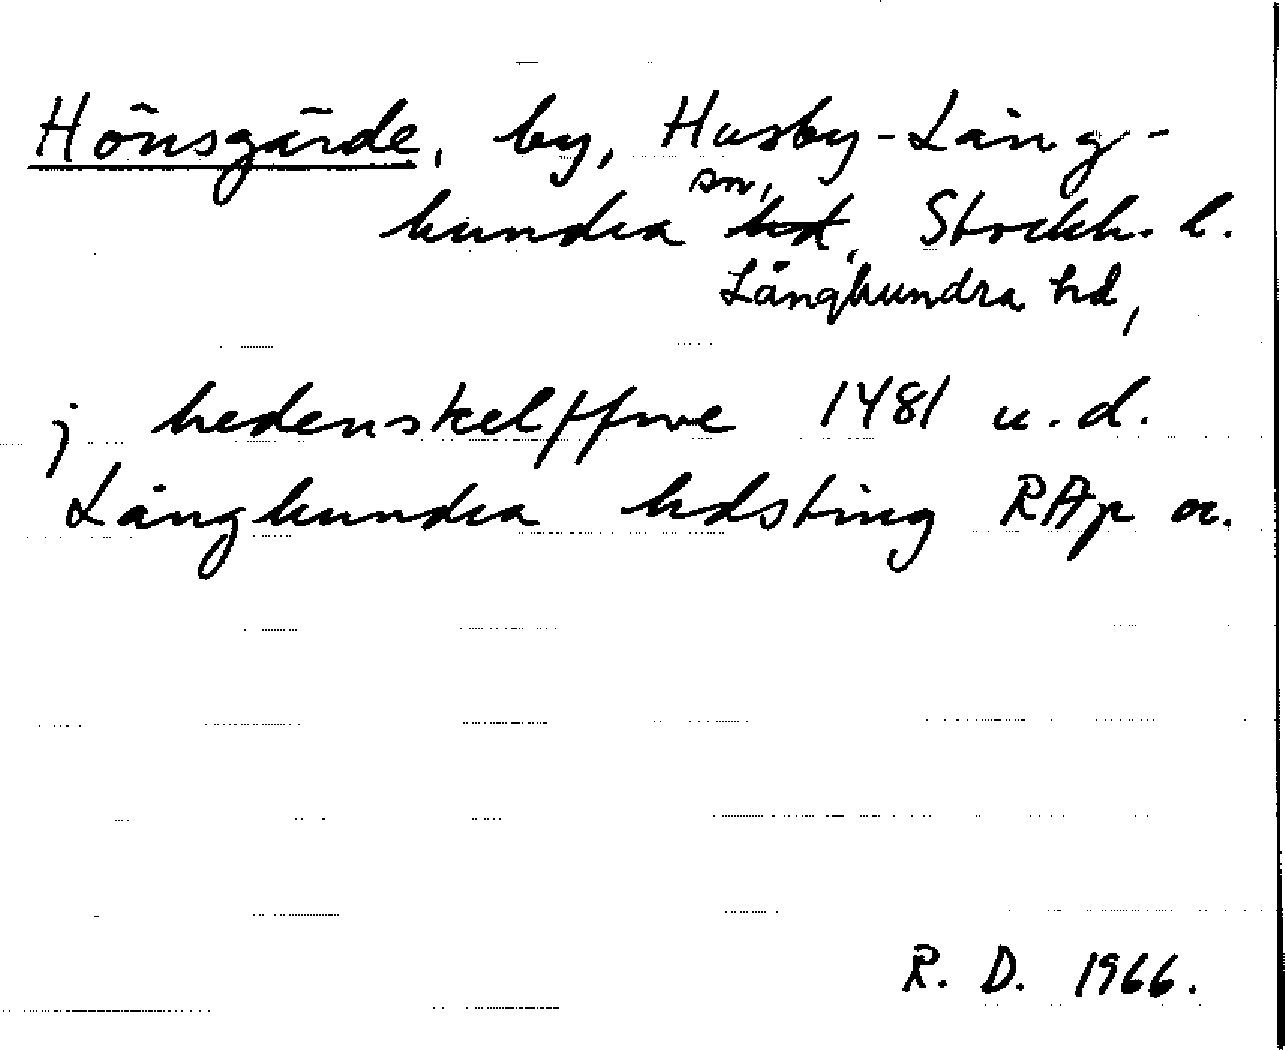 Hönsgärde, by, Husby-Lång-
hundra sn, Stockh. l.
Långhundra hd,
j hedenskelffwe 1481 u. d.
Långhundra hdsting RAp or.
R. D. 1966.